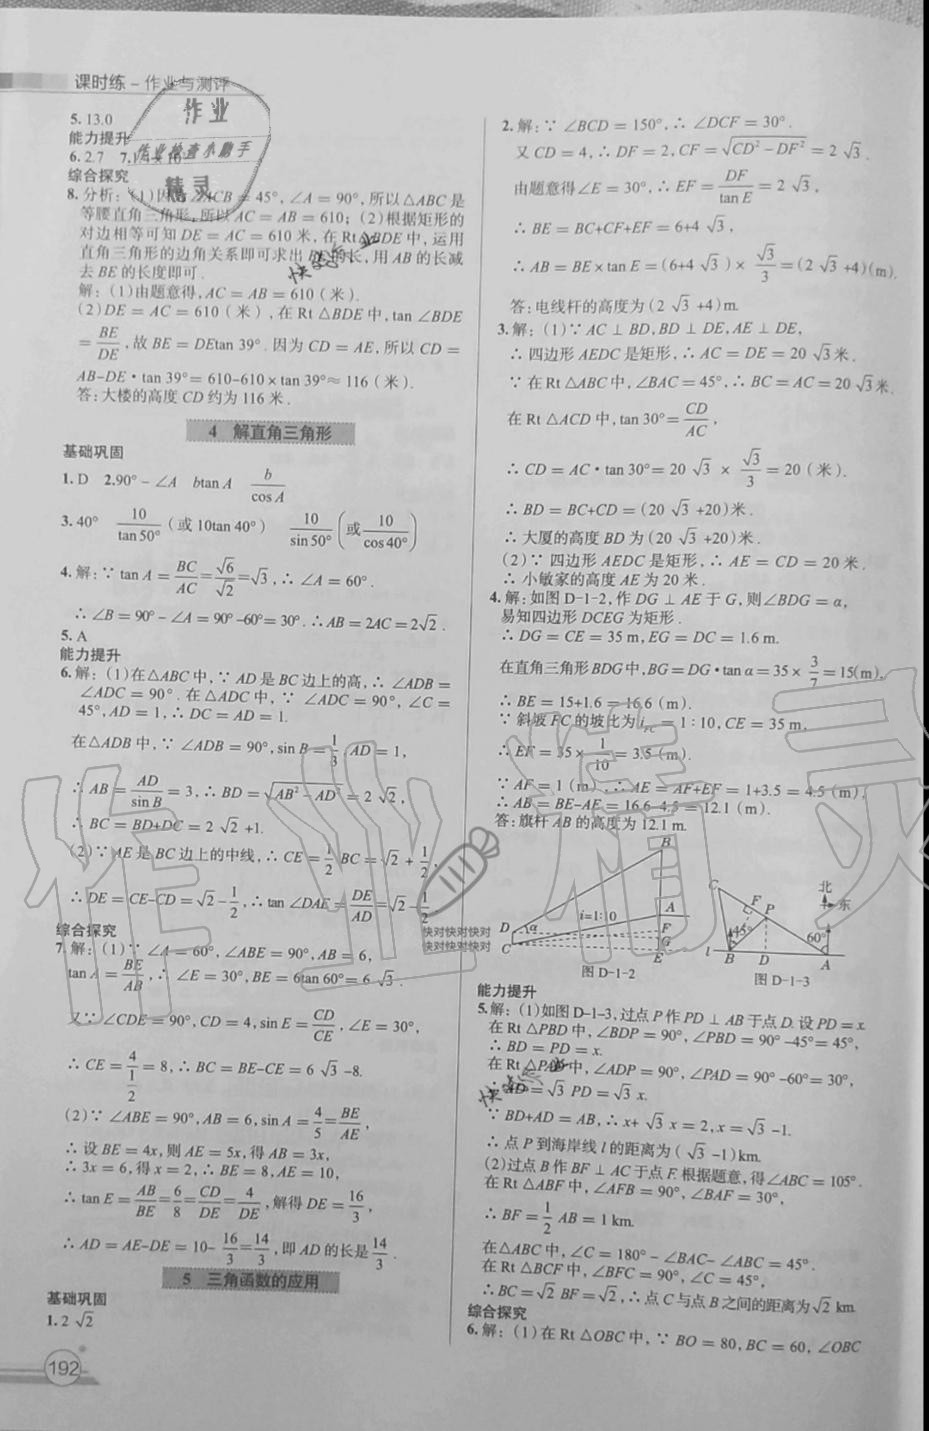 课时练-作业与测评
5. 13.0
能力提升
6. 2.7
综合探究
作业
作业检查小助手
精灵
8. 分析:(1)因为∠ACB = 45°,∠A = 90°,所以△ABC是
等腰直角三角形,所以AC = AB = 610;(2)根据矩形的
对边相等可知DE = AC = 610米,在Rt△BDE中,运用
直角三角形的边角关系即可求出BE的长,用AB的长减
去BE的长度即可.
解:(1)由题意得,AC = AB = 610(米).
(2)DE = AC = 610(米),在Rt△BDE中,tan∠BDE
= BE/DE,故BE = DEtan 39°.因为CD = AE,所以CD =
AB-DE·tan 39° = 610-610×tan 39° ≈ 116(米).
答:大楼的高度CD约为116米.
4 解直角三角形
基础巩固
1. D 2. 90° - ∠A btan A b/cos A
3. 40° 10/tan 50°(或10tan 40°) 10/sin 50°(或10/cos 40°)
4. 解:∵ tan A = BC/AC = √6/√2 = √3,∴ ∠A = 60°.
∴ ∠B = 90° - ∠A = 90°-60° = 30°.∴ AB = 2AC = 2√2.
5. A
能力提升
6. 解:(1)在△ABC中,∵ AD是BC边上的高,∴ ∠ADB =
∠ADC = 90°.在△ADC中,∵ ∠ADC = 90°,∠C =
45°,AD = 1,∴ DC = AD = 1.
在△ADB中,∵ ∠ADB = 90°,sin B = 1/3,AD = 1,
∴ AB = AD/sin B = 3,∴ BD = √(AB²-AD²) = 2√2,
∴ BC = BD+DC = 2√2+1.
(2)∵ AE是BC边上的中线,∴ CE = 1/2 BC = √2 + 1/2,
∴ DE = CE-CD = √2 - 1/2,∴ tan∠DAE = DE/AD = √2 - 1/2
综合探究
7. 解:(1)∵ ∠A = 60°,∠ABE = 90°,AB = 6,
tan A = BE/AB,∴ ∠E = 30°,BE = 6tan 60° = 6√3.
又∵ ∠CDE = 90°,CD = 4,sin E = CD/CE,∠E = 30°,
∴ CE = 4/(1/2) = 8,∴ BC = BE-CE = 6√3-8.
(2)∵ ∠ABE = 90°,AB = 6,sin A = 4/5 = BE/AE,
∴ 设BE = 4x,则AE = 5x,得AB = 3x,
∴ 3x = 6,得x = 2,∴ BE = 8,AE = 10,
∴ tan E = AB/BE = 6/8 = CD/DE = 4/DE,解得DE = 16/3,
∴ AD = AE-DE = 10 - 16/3 = 14/3,即AD的长是14/3.
5 三角函数的应用
基础巩固
1. 2√2
192
2. 解:∵ ∠BCD = 150°,∴ ∠DCF = 30°.
又CD = 4,∴ DF = 2,CF = √(CD²-DF²) = 2√3.
由题意得∠E = 30°,∴ EF = DF/tan E = 2√3,
∴ BE = BC+CF+EF = 6+4√3,
∴ AB = BE×tan E = (6+4√3)×√3/3 = (2√3+4)(m).
答:电线杆的高度为(2√3+4)m.
3. 解:(1)∵ AC ⊥ BD,BD ⊥ DE,AE ⊥ DE,
∴ 四边形AEDC是矩形,∴ AC = DE = 20√3米.
∵ 在Rt△ABC中,∠BAC = 45°,∴ BC = AC = 20√3米.
在Rt△ACD中,tan 30° = CD/AC,
∴ CD = AC·tan 30° = 20√3 × √3/3 = 20(米).
∴ BD = BC+CD = (20√3+20)米.
∴ 大厦的高度BD为(20√3+20)米.
(2)∵ 四边形AEDC是矩形,∴ AE = CD = 20米.
∴ 小敏家的高度AE为20米.
4. 解:如图D-1-2,作DG ⊥ AE于G,则∠BDG = α,
易知四边形DCEG为矩形.
∴ DG = CE = 35 m,EG = DC = 1.6 m.
在直角三角形BDG中,BG = DG·tan α = 35×3/7 = 15(m),
∴ BE = 15+1.6 = 16.6(m).
∵ 斜坡FC的坡比为iFC = 1:10,CE = 35 m,
∴ EF = 35×1/10 = 3.5(m).
∵ AF = 1(m),∴ AE = AF+EF = 1+3.5 = 4.5(m),
∴ AB = BE-AE = 16.6-4.5 = 12.1(m).
答:旗杆AB的高度为12.1 m.
B
A
D α i=1:10 F
C G
E
快对快对快对
快对快对快对
图D-1-2
C 北
F P 东
45° 60°
l B D A
图D-1-3
能力提升
5. 解:(1)如图D-1-3,过点P作PD ⊥ AB于点D.设PD = x.
在Rt△PBD中,∠BDP = 90°,∠PBD = 90°-45° = 45°,
∴ BD = PD = x.
在Rt△PAD中,∠ADP = 90°,∠PAD = 90°-60° = 30°,
∴ AD = √3 PD = √3 x.
∵ BD+AD = AB,∴ x+√3 x = 2,x = √3-1.
∴ 点P到海岸线l的距离为(√3-1)km.
(2)过点B作BF ⊥ AC于点F.根据题意,得∠ABC = 105°.
在Rt△ABF中,∠AFB = 90°,∠BAF = 30°,
∴ BF = 1/2 AB = 1 km.
在△ABC中,∠C = 180° - ∠BAC - ∠ABC = 45°.
在Rt△BCF中,∠BFC = 90°,∠C = 45°,
∴ BC = √2 BF = √2,∴ 点C与点B之间的距离为√2 km.
综合探究
6. 解:(1)在Rt△OBC中,∵ BO = 80,BC = 60,∠OBC